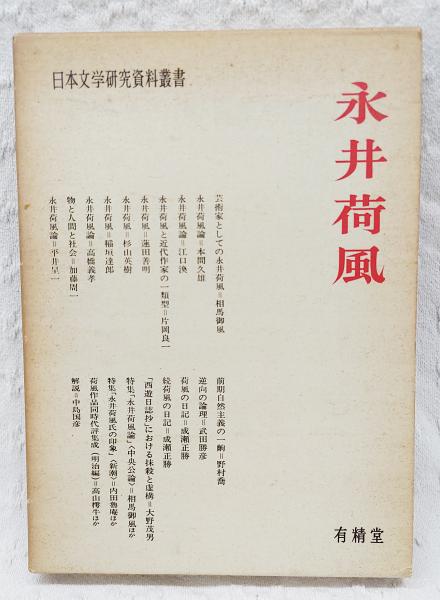 日本文学研究資料叢書
永井荷風
芸術家としての永井荷風=相馬御風
永井荷風論=本間久雄
永井荷風論=江口渙
永井荷風と近代作家の一類型=片岡良一
永井荷風=蓮田善明
永井荷風=杉山英樹
永井荷風=稲垣達郎
永井荷風論=高橋義孝
物と人間と社会=加藤周一
永井荷風論=平井呈一
前期自然主義の一齣=野村喬
逆向の論理=武田勝彦
荷風の日記=成瀬正勝
続荷風の日記=成瀬正勝
「西遊日誌抄」における抹殺と虚構=大野茂男
特集「永井荷風論」〈中央公論〉=相馬御風ほか
特集「永井荷風氏の印象」〈新潮〉=内田魯庵ほか
荷風作品同時代評集成(明治編)=高山樗牛ほか
解説=中島国彦
有精堂